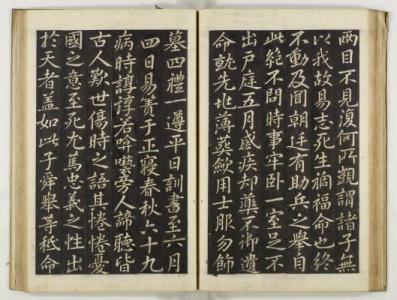 兩目不見復何所親謂諸子無
以我故易志死生禍福命也終
不動及聞朝廷有助兵之舉自
此絶不問時事牢卧一室足不
出戶庭五月感疾却藥不御遺
命就先地薄葬歛用士服勿餙
墓四禮一遵平日訓書至六月
四日易簀于正寢春秋六十九
病時諄諄若囈旁人諦聽皆
古人歎世傷時之語其惓惓憂
國之意至死尤篤忠義之性出
於天者盖如此子舜舉等祗命